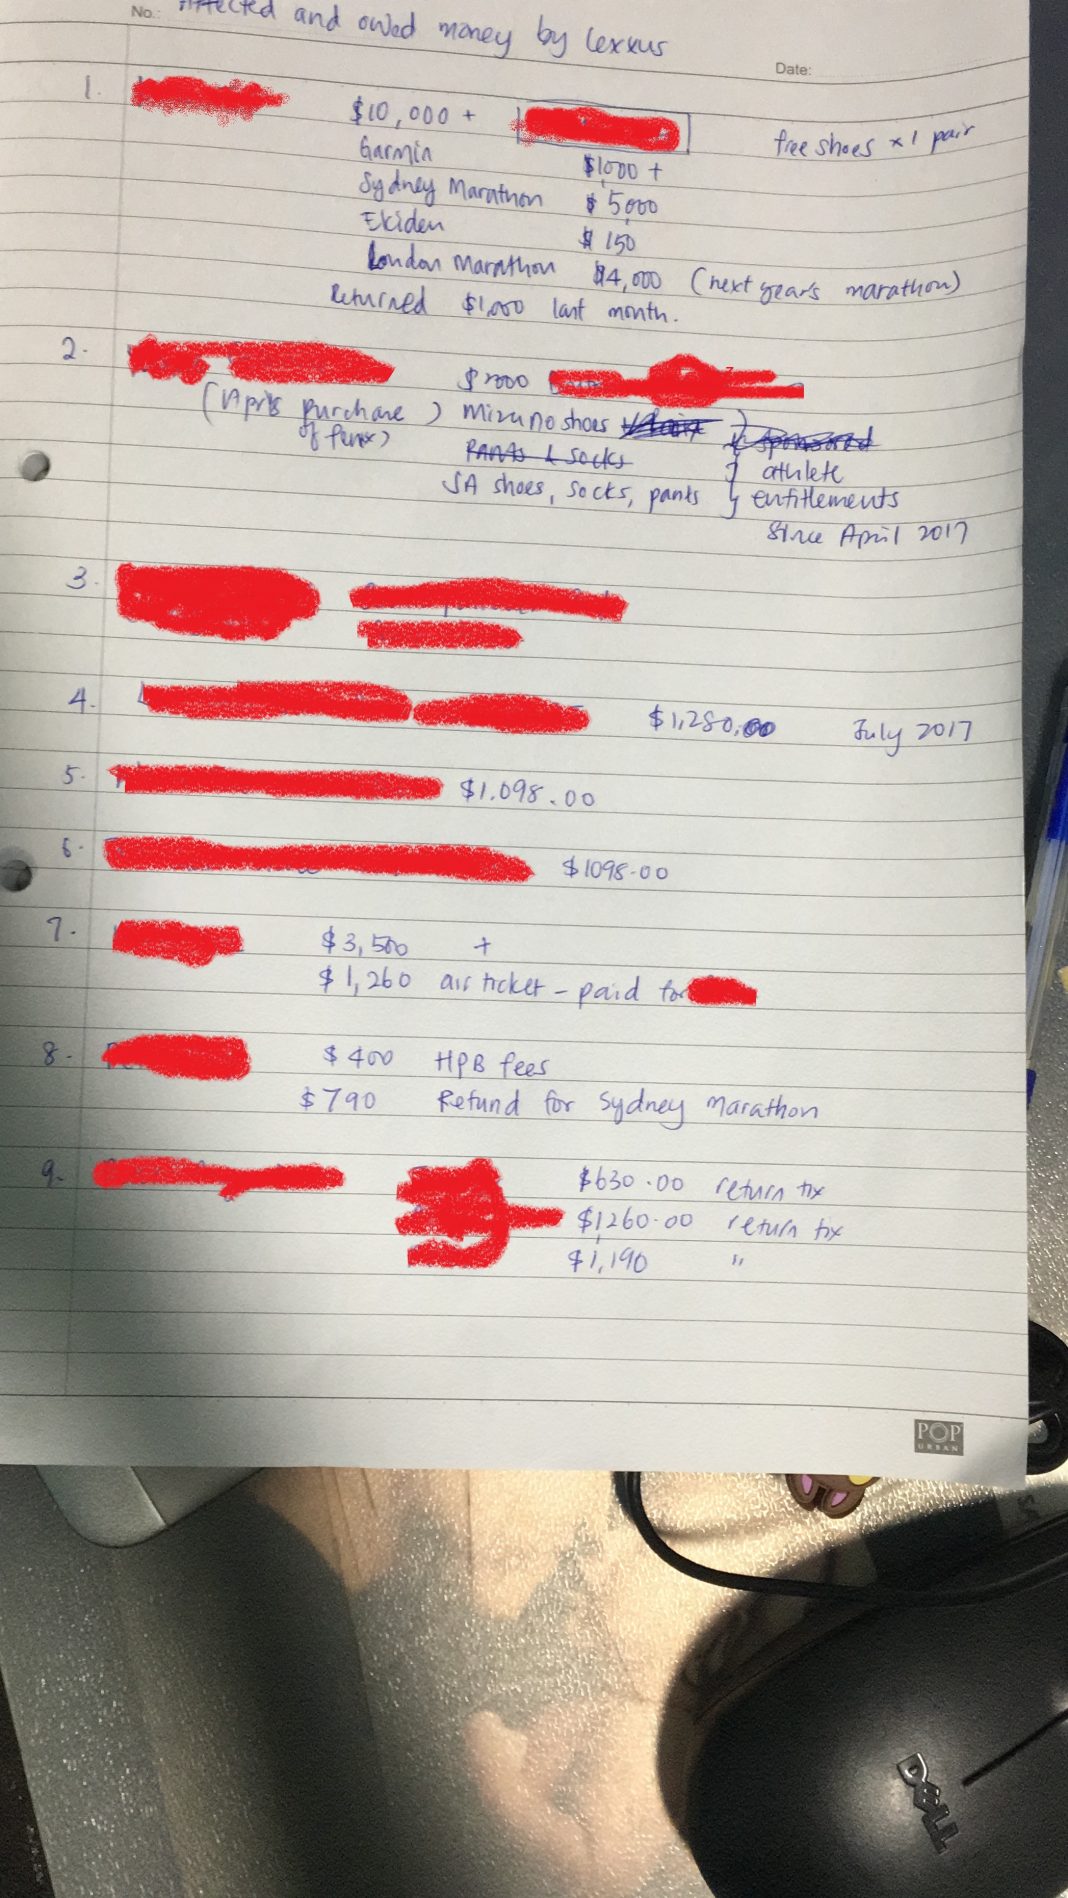 No.: and owed money by lexxus
Date:
1. $10,000 + free shoes x 1 pair
Garmin $1000 +
Sydney Marathon $5000
Ekiden $150
London Marathon $4,000 (next year's marathon)
Returned $1,000 last month.
2. $2000
(April's purchase) Mizuno shoes sponsored
of fenix) Pants & socks athlete
SA shoes, socks, pants entitlements
Since April 2017
3.
4. $1,280.00 July 2017
5. $1.098.00
6. $1098.00
7. $3,500 +
$1,260 air ticket - paid for
8. $400 HPB fees
$790 Refund for Sydney Marathon
9. $630.00 return tix
$1260.00 return tix
$1,190 "
POP
URBAN
DELL